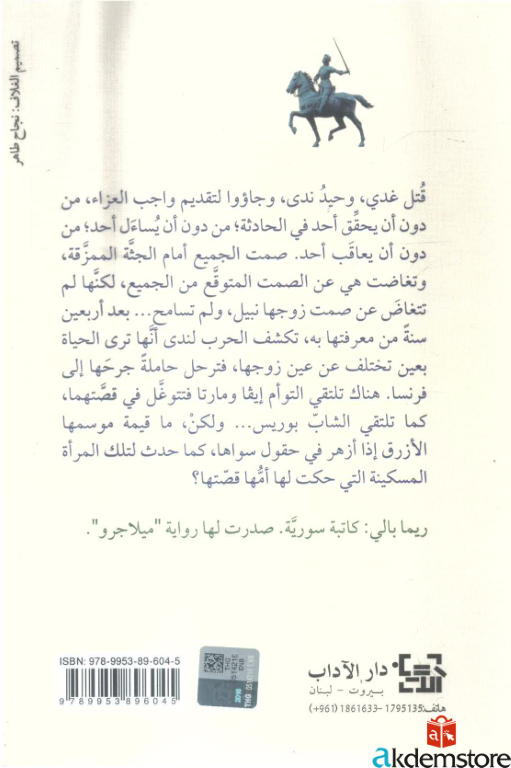 تصميم الغلاف: نجاح طاهر
قُتل غدي، وحيدُ ندى، وجاؤوا لتقديم واجب العزاء، من
دون أن يحقِّق أحد في الحادثة؛ من دون أن يُساءَل أحد؛ من
دون أن يعاقَب أحد. صمت الجميع أمام الجثَّة الممزَّقة،
وتغاضت هي عن الصمت المتوقَّع من الجميع، لكنَّها لم
تتغاضَ عن صمت زوجها نبيل، ولم تسامح... بعد أربعين
سنةً من معرفتها به، تكشف الحرب لندى أنَّها ترى الحياة
بعين تختلف عن عين زوجها، فترحل حاملةً جرحَها إلى
فرنسا. هناك تلتقي التوأم إيڤا ومارتا فتتوغَّل في قصَّتهما،
كما تلتقي الشابّ بوريس... ولكنْ، ما قيمة موسمها
الأزرق إذا أزهر في حقول سواها، كما حدث لتلك المرأة
المسكينة التي حكت لها أمُّها قصّتها؟
ريما بالي: كاتبة سوريَّة. صدرت لها رواية "ميلاجرو".
ISBN: 978-9953-89-604-5
9 789953 896045
دار الآداب
بيروت - لبنان
هاتف: 1795135 -1861633 (961+)
akdemstore